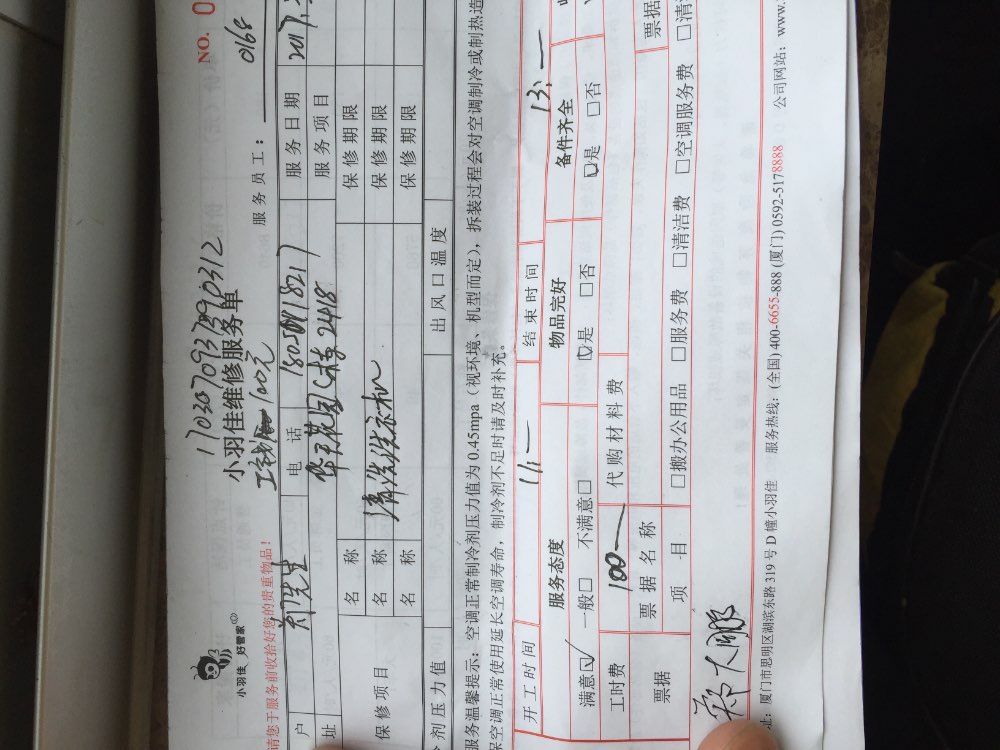 1703070937990312
小羽佳 好管家
小羽佳维修服务单
NO. 0
工钱 100元
服务员工： 0168
请您于服务前收拾好您的贵重物品！
户 邓先生 电话 18050118217 服务日期 2017.
址 华天花园C栋2418 服务项目
保修项目
名称 保修期限
名称 清洗洗衣机 保修期限
名称 保修期限
剂压力值 出风口温度
服务温馨提示：空调正常制冷剂压力值为 0.45mpa（视环境、机型而定），拆装过程会对空调制冷或制热造
空调正常使用延长空调寿命，制冷剂不足时请及时补充。
开工时间 11:— 结束时间 13:—
服务态度 物品完好 备件齐全
满意☑ 一般□ 不满意□ ☑是 □否 ☑是 □否
工时费 100— 代购材料费
票据 票据名称 票据
项目 □搬办公用品 □服务费 □清洁费 □空调服务费 □清
址：厦门市思明区湖滨东路 319 号 D 幢小羽佳 服务热线：(全国) 400-6655-888 (厦门) 0592-5178888 公司网站：www.